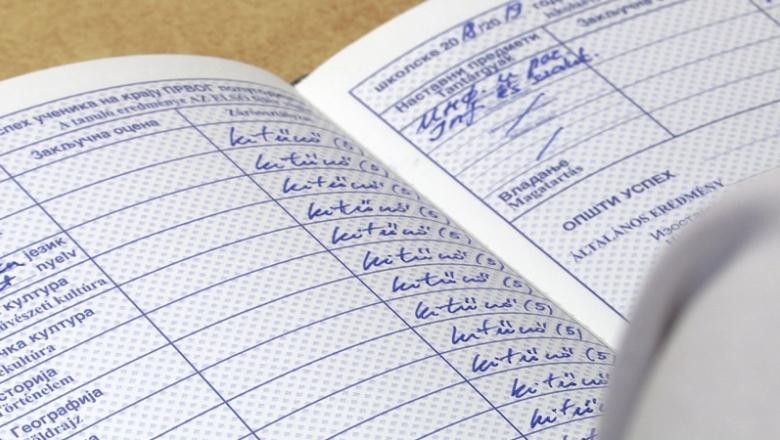 спех ученика на крају ПРВОГ полуго
A tanuló eredménye AZ ELSŐ
Закључна оцена
kitűnő (5)
kitűnő (5)
kitűnő (5)
kitűnő (5)
kitűnő (5)
језик
nyelv
kitűnő (5)
култура
művészeti kultúra
kitűnő (5)
чка култура
kultúra
kitűnő (5)
сторија
Történelem
kitűnő (5)
Географија
Földrajz
kitűnő (5)
kitűnő
kitűnő
школске 2018/2019
Наставни предмети
Tantárgyak
Закључна
Инф. и рач.
Inf. és számít.
Владање
Magatartás
ОПШТИ УСПЕХ
ÁLTALÁNOS EREDMÉNY
Изоста